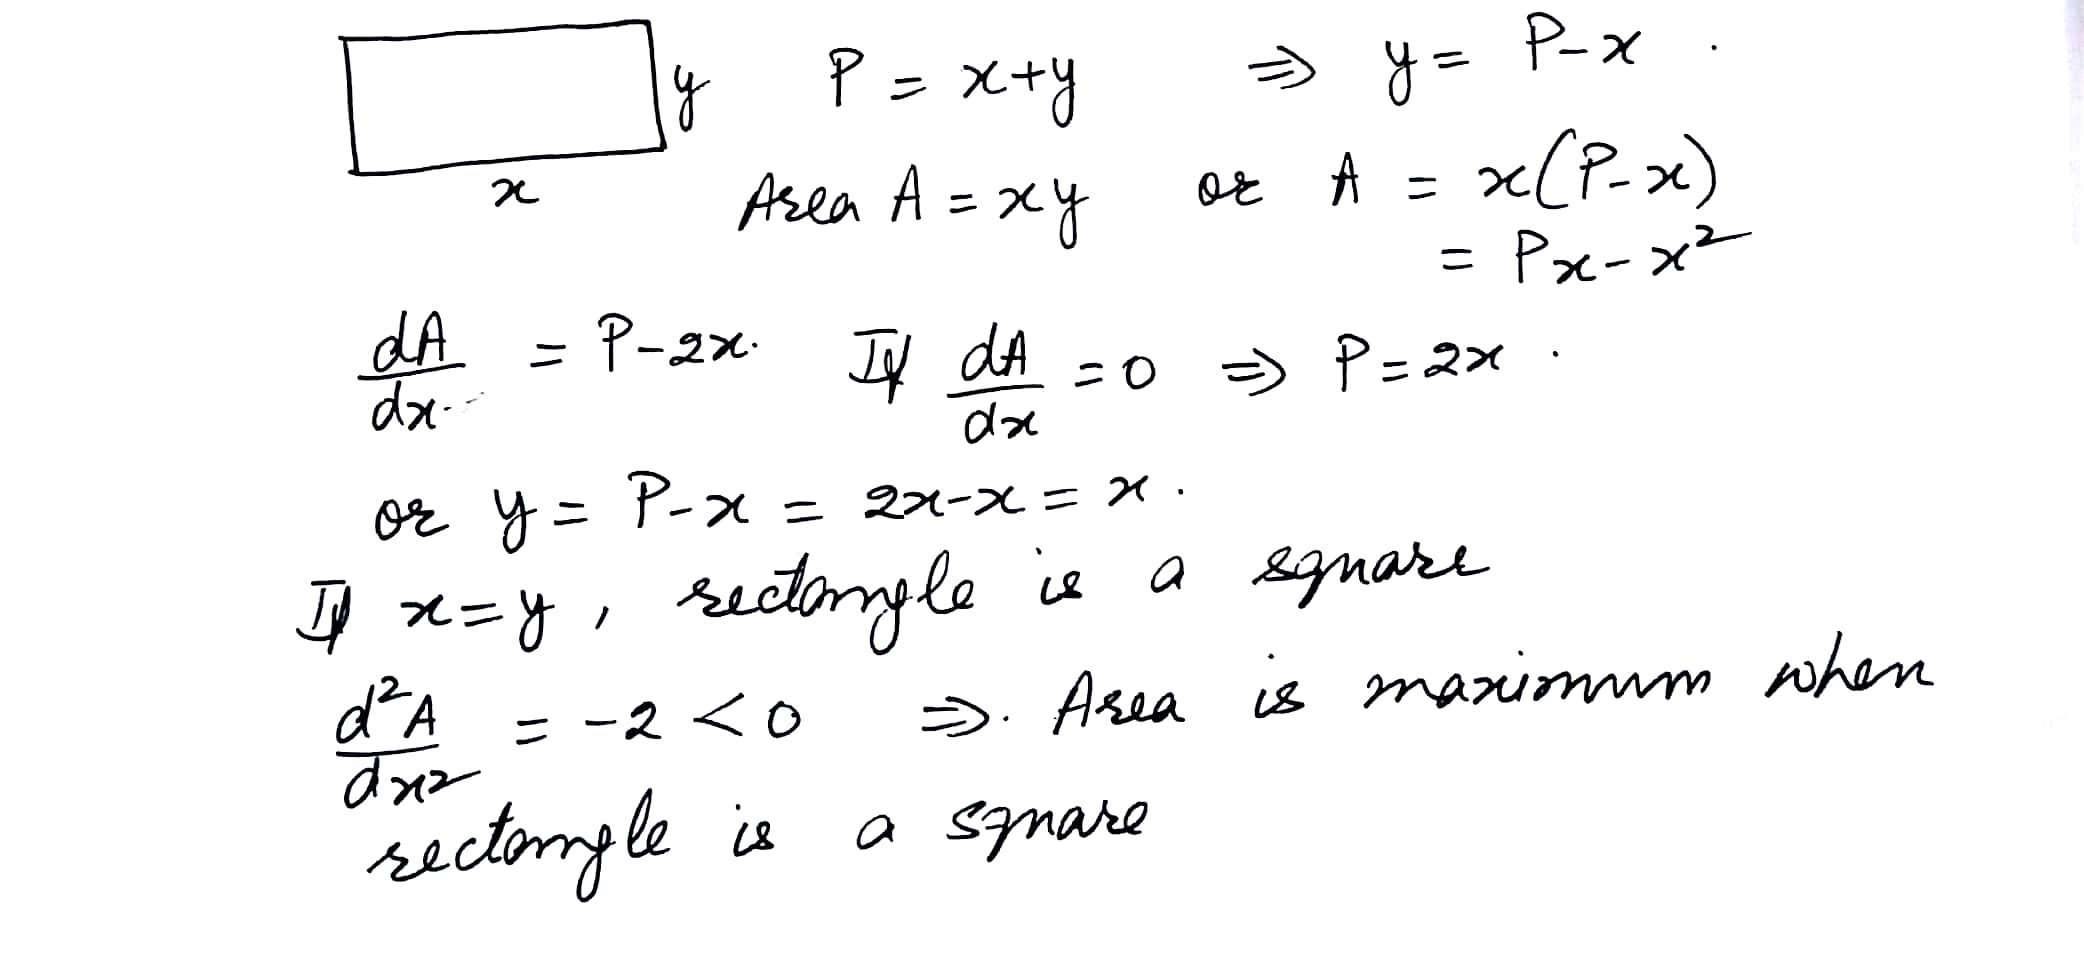 y P = x+y ⇒ y = P-x .
x Area A = xy or A = x(P-x)
= Px - x²
dA/dx = P-2x. If dA/dx = 0 ⇒ P = 2x .
or y = P-x = 2x-x = x .
If x=y , rectangle is a square
d²A/dx² = -2 < 0 ⇒. Area is maximum when
rectangle is a square